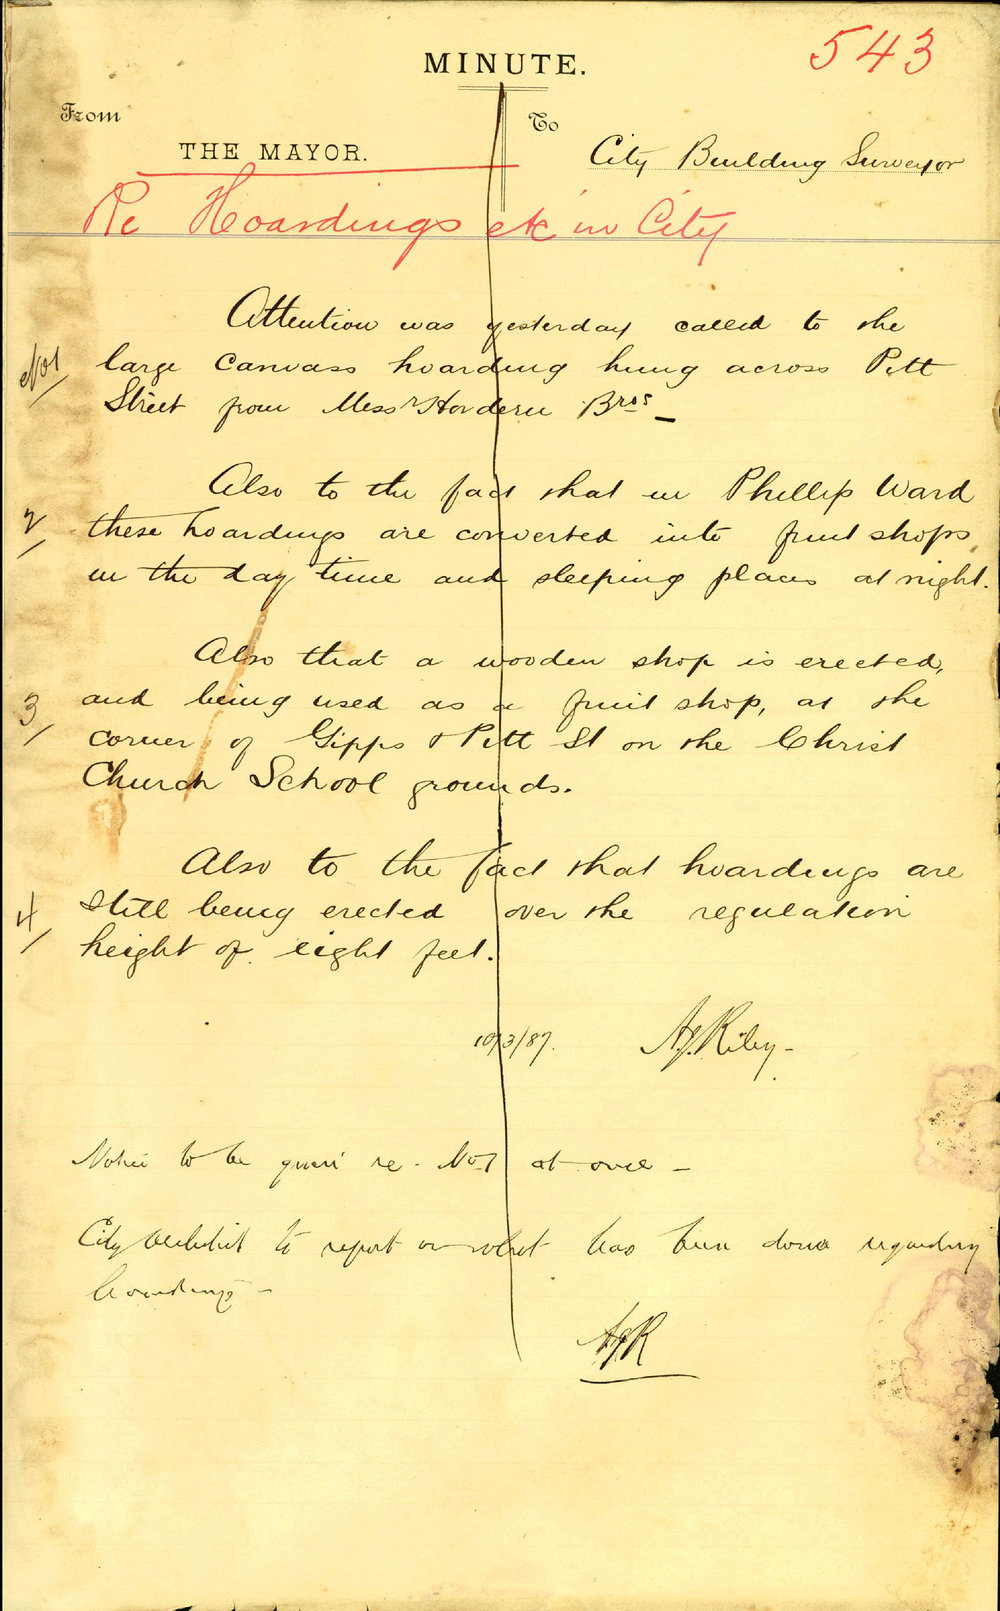 543
MINUTE.
From
To
THE MAYOR.
City Building Surveyor
Re Hoardings etc in City
No1
Attention was yesterday called to the
large canvass hoarding hung across Pitt
Street from Messrs Hordern Bros
2
Also to the fact that in Phillip Ward
these hoardings are converted into fruit shops
in the day time and sleeping places at night.
3
Also that a wooden shop is erected,
and being used as a fruit shop, at the
corner of Gipps & Pitt St on the Christ
Church School grounds.
4
Also to the fact that hoardings are
still being erected over the regulation
height of eight feet.
10/3/87. A.J. Riley
Notice to be given re. No 1 at once
City Architect to report on what has been done regarding
hoardings
AJR